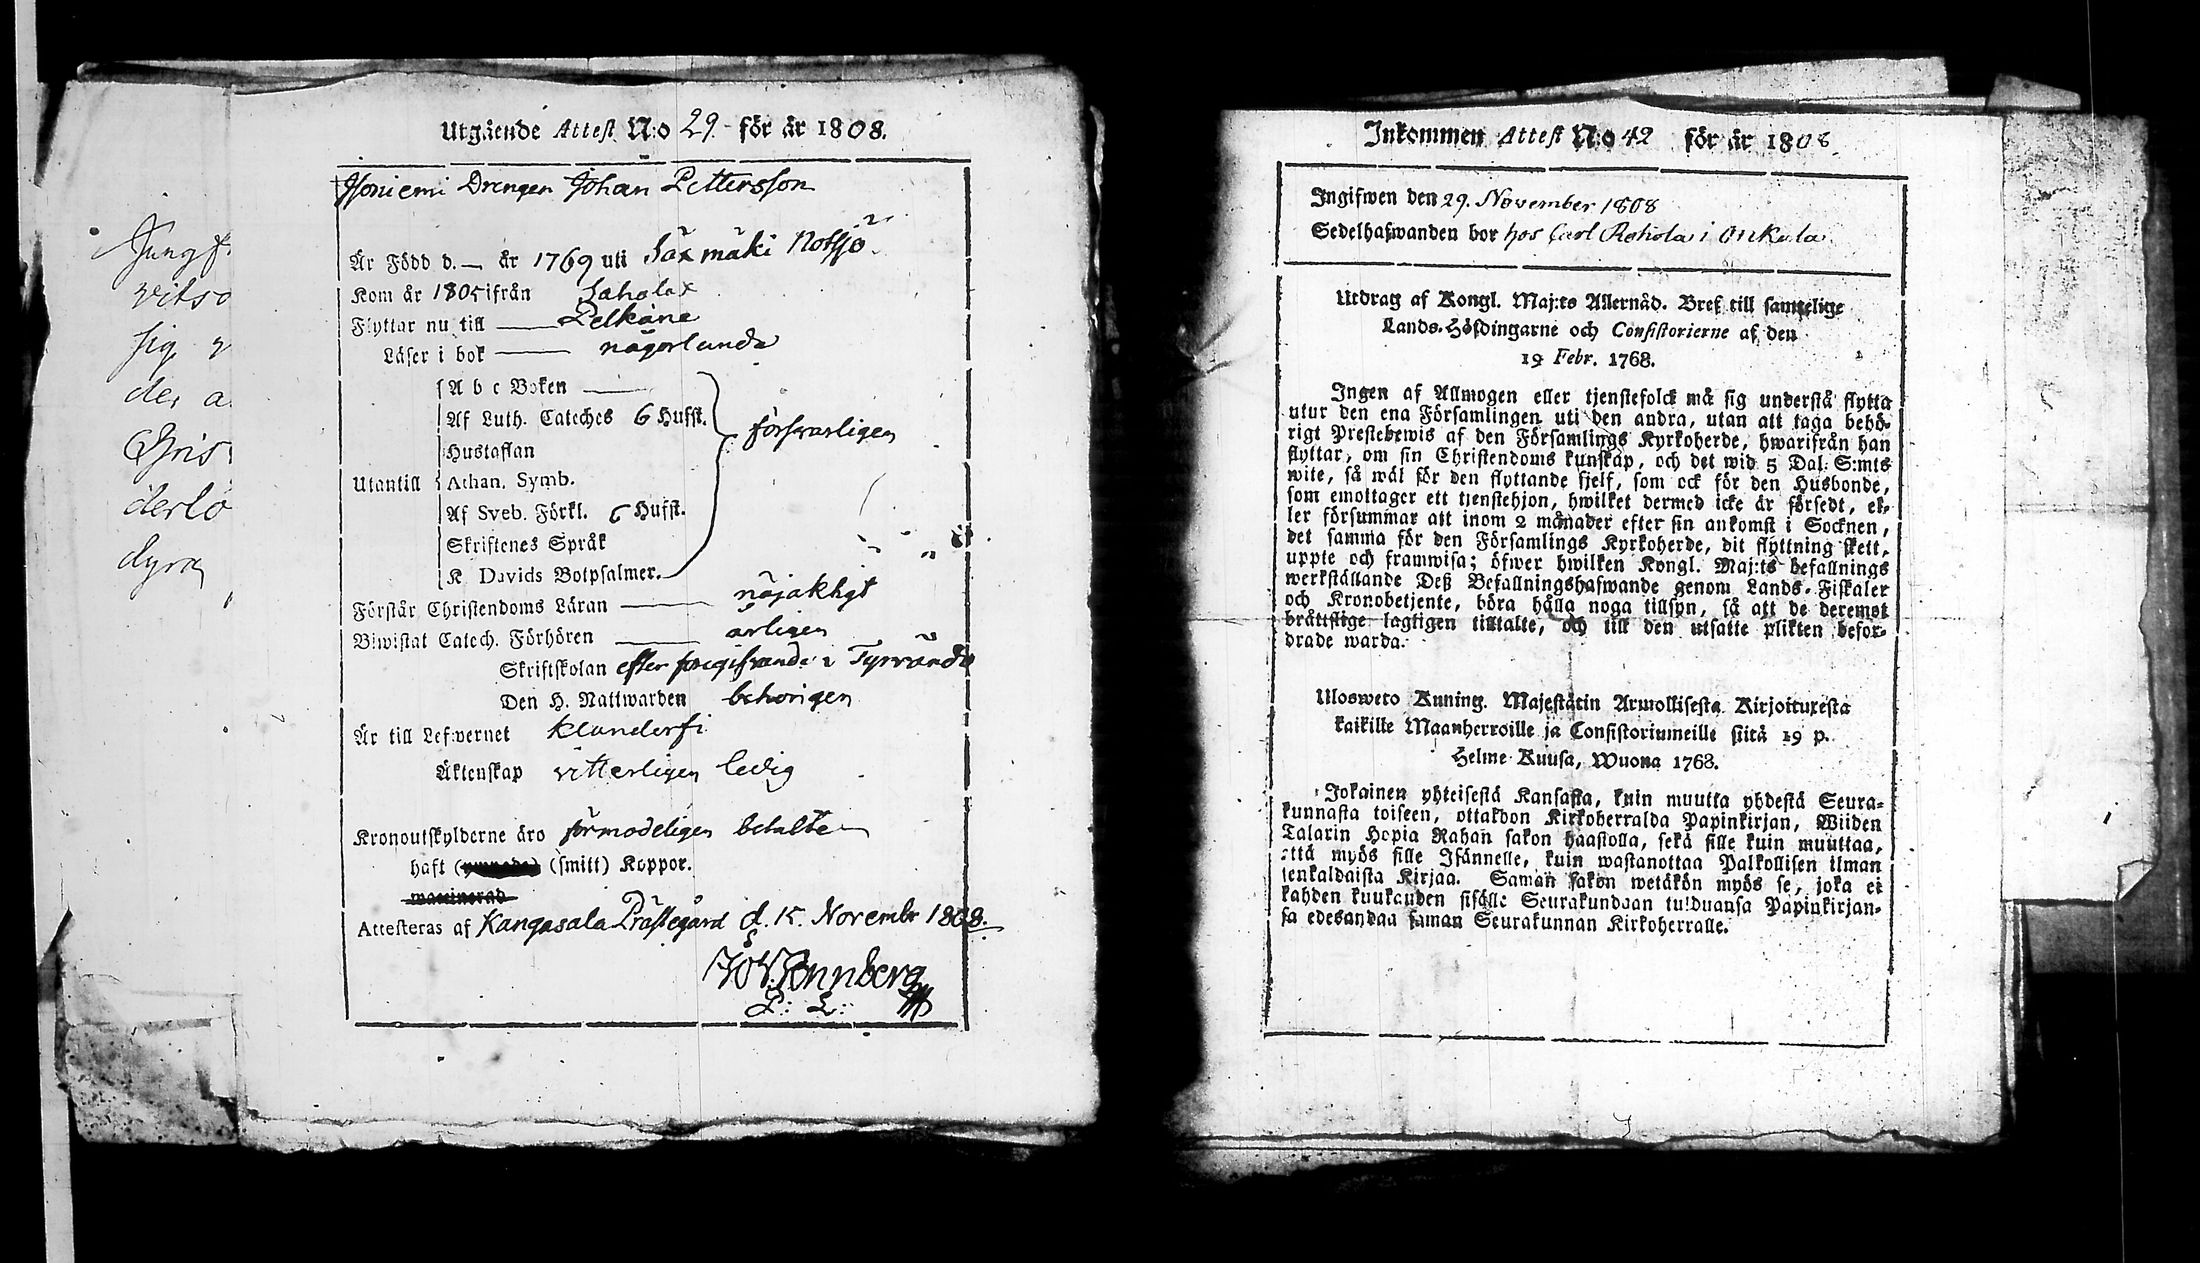 Utgående Attest N:o 29. för år 1808.
Isoniemi Drengen Johan Pettersson
Är Född d. — år 1769 uti Säxmäki Notsjö
Kom år 1805 ifrån Sahalax
Flyttar nu till — Pelkäne
Läser i bok — någorlunda
A b c Boken —
Af Luth. Cateches 6 Hufst.
försvarligen
Hustaflan
Utantill Athan. Symb.
Af Sveb. Förkl. 6 Hufst.
Skriftenes Språk
K Davids Botpsalmer.
Förstår Christendoms Läran — nöjaktigt
Biwistat Catech. Förhören — årligen
Skriftskolan efter föregifvande i Tyrvändö
Den H. Nattwarden behörigen
Är till Lefwernet klanderfri
Äktenskap vitterligen ledig
Kronoutskylderne äro förmodeligen betalte
haft (smitt) Koppor.
waccinerad
Attesteras af Kangasala Prästegård d. 15. Novembr 1808.
P: L:
Jungf
vitso
sig
der a
Chris
derlo
dyra
Inkommen Attest N:o 42 för år 1808
Ingifwen den 29. November 1808
Sedelhafwanden bor hos Carl Rohola i Onkala
Utdrag af Kongl. Maj:ts Allernåd. Bref till samtelige
Lands-Höfdingarne och Consistorierne af den
19 Febr. 1768.
Ingen af Allmogen eller tjenstefolck må sig understå flytta
utur den ena Församlingen uti den andra, utan att taga behö-
rigt Prestebewis af den Församlings Kyrkoherde, hwarifrån han
flyttar, om sin Christendoms kunskap, och det wid 5 Dal. S:mts
wite, så wäl för den flyttande sjelf, som ock för den Husbonde,
som emottager ett tjenstehjon, hwilket dermed icke är försedt, el-
ler försummar att inom 2 månader efter sin ankomst i Socknen,
det samma för den Församlings Kyrkoherde, dit flyttning skett,
uppte och framwisa; öfwer hwilken Kongl. Maj:ts befallnings
werkställande Deß Befallningshafwande genom Lands-Fiskaler
och Kronobetjente, böra hålla noga tillsyn, så att de deremot
bråttslige lagligen tilltalte, och till den utsatte plikten befor-
drade warda.
Ulosweto Kuning. Majestätin Armollisesta Kirjoituxesta
kaikille Maanherroille ja Consistoriumeille siitä 19 p.
Helme Kuusa, Wuona 1768.
Jokainen yhteisestä Kansasta, kuin muutta yhdestä Seura-
kunnasta toiseen, ottakoon Kirkoherralda Papinkirjan, Wiiden
Talarin Hopia Rahan sakon haastolla, sekä sille kuin muuttaa,
että myös sille Isännelle, kuin wastanottaa Palkollisen ilman
senkaldaista Kirjaa. Saman sakon wetäkön myös se, joka ei
kahden kuukauden sisälle Seurakundaan tulduansa Papinkirjan-
sa edesandaa saman Seurakunnan Kirkoherralle.